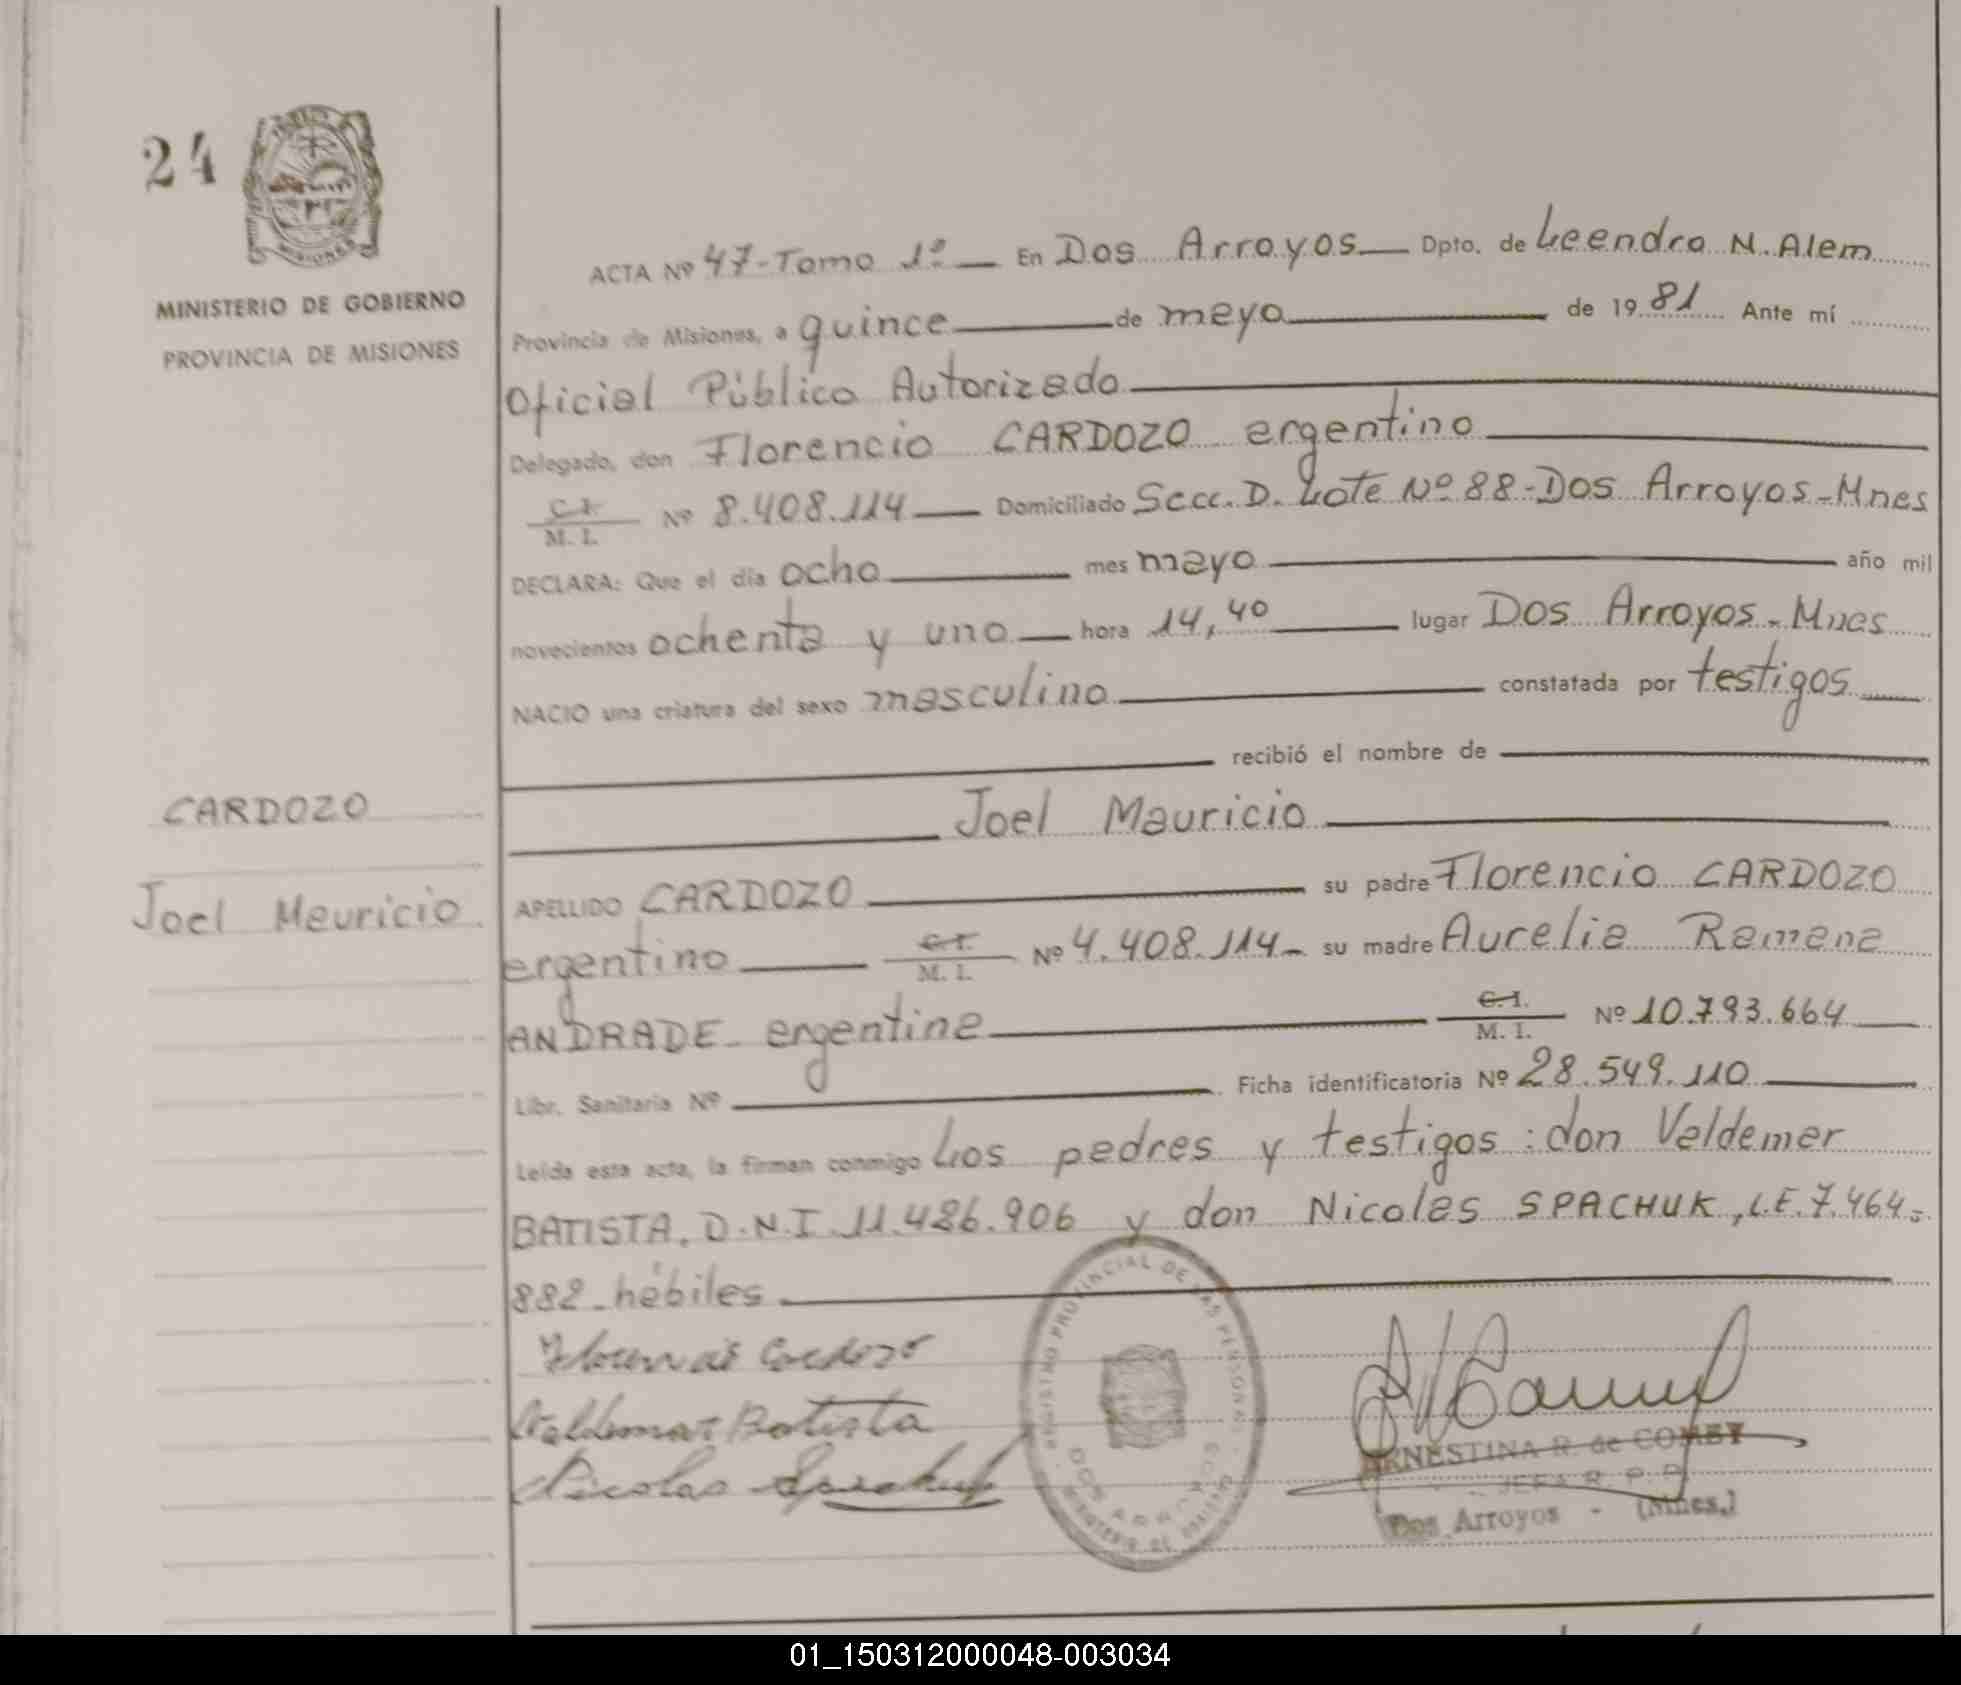 24
MINISTERIO DE GOBIERNO
PROVINCIA DE MISIONES
ACTA Nº 47-Tomo 1º En Dos Arroyos Dpto. de Leandro N. Alem
Provincia de Misiones, a quince de mayo de 1981 Ante mí
Oficial Público Autorizado
Delegado, don Florencio CARDOZO argentino
C.I. M. I. Nº 8.408.114 Domiciliado Secc. D. Lote Nº 88-Dos Arroyos-Mnes
DECLARA: Que el día ocho mes mayo año mil
novecientos ochenta y uno hora 14,40 lugar Dos Arroyos-Mnes
NACIO una criatura del sexo masculino constatada por testigos
recibió el nombre de
Joel Mauricio
CARDOZO
Joel Mauricio
APELLIDO CARDOZO su padre Florencio CARDOZO
argentino C.I. M. I. Nº 4.408.114- su madre Aurelia Ramona
ANDRADE- argentina C.I. M. I. Nº 10.793.664
Libr. Sanitaria Nº Ficha identificatoria Nº 28.549.110
Leída esta acta, la firman conmigo Los padres y testigos: don Valdemar
BATISTA, D.N.I. 11.486.906 y don Nicolas SPACHUK, L.E. 7.464-
882-hábiles
Valdemar Batista
Nicolas Spachuk
REGISTRO PROVINCIAL DE LAS PERSONAS
DOS ARROYOS
MINISTERIO DE GOBIERNO
ERNESTINA R. de COMBY
JEFA R. P. P.
Dos Arroyos - (Mnes.)
01_150312000048-003034